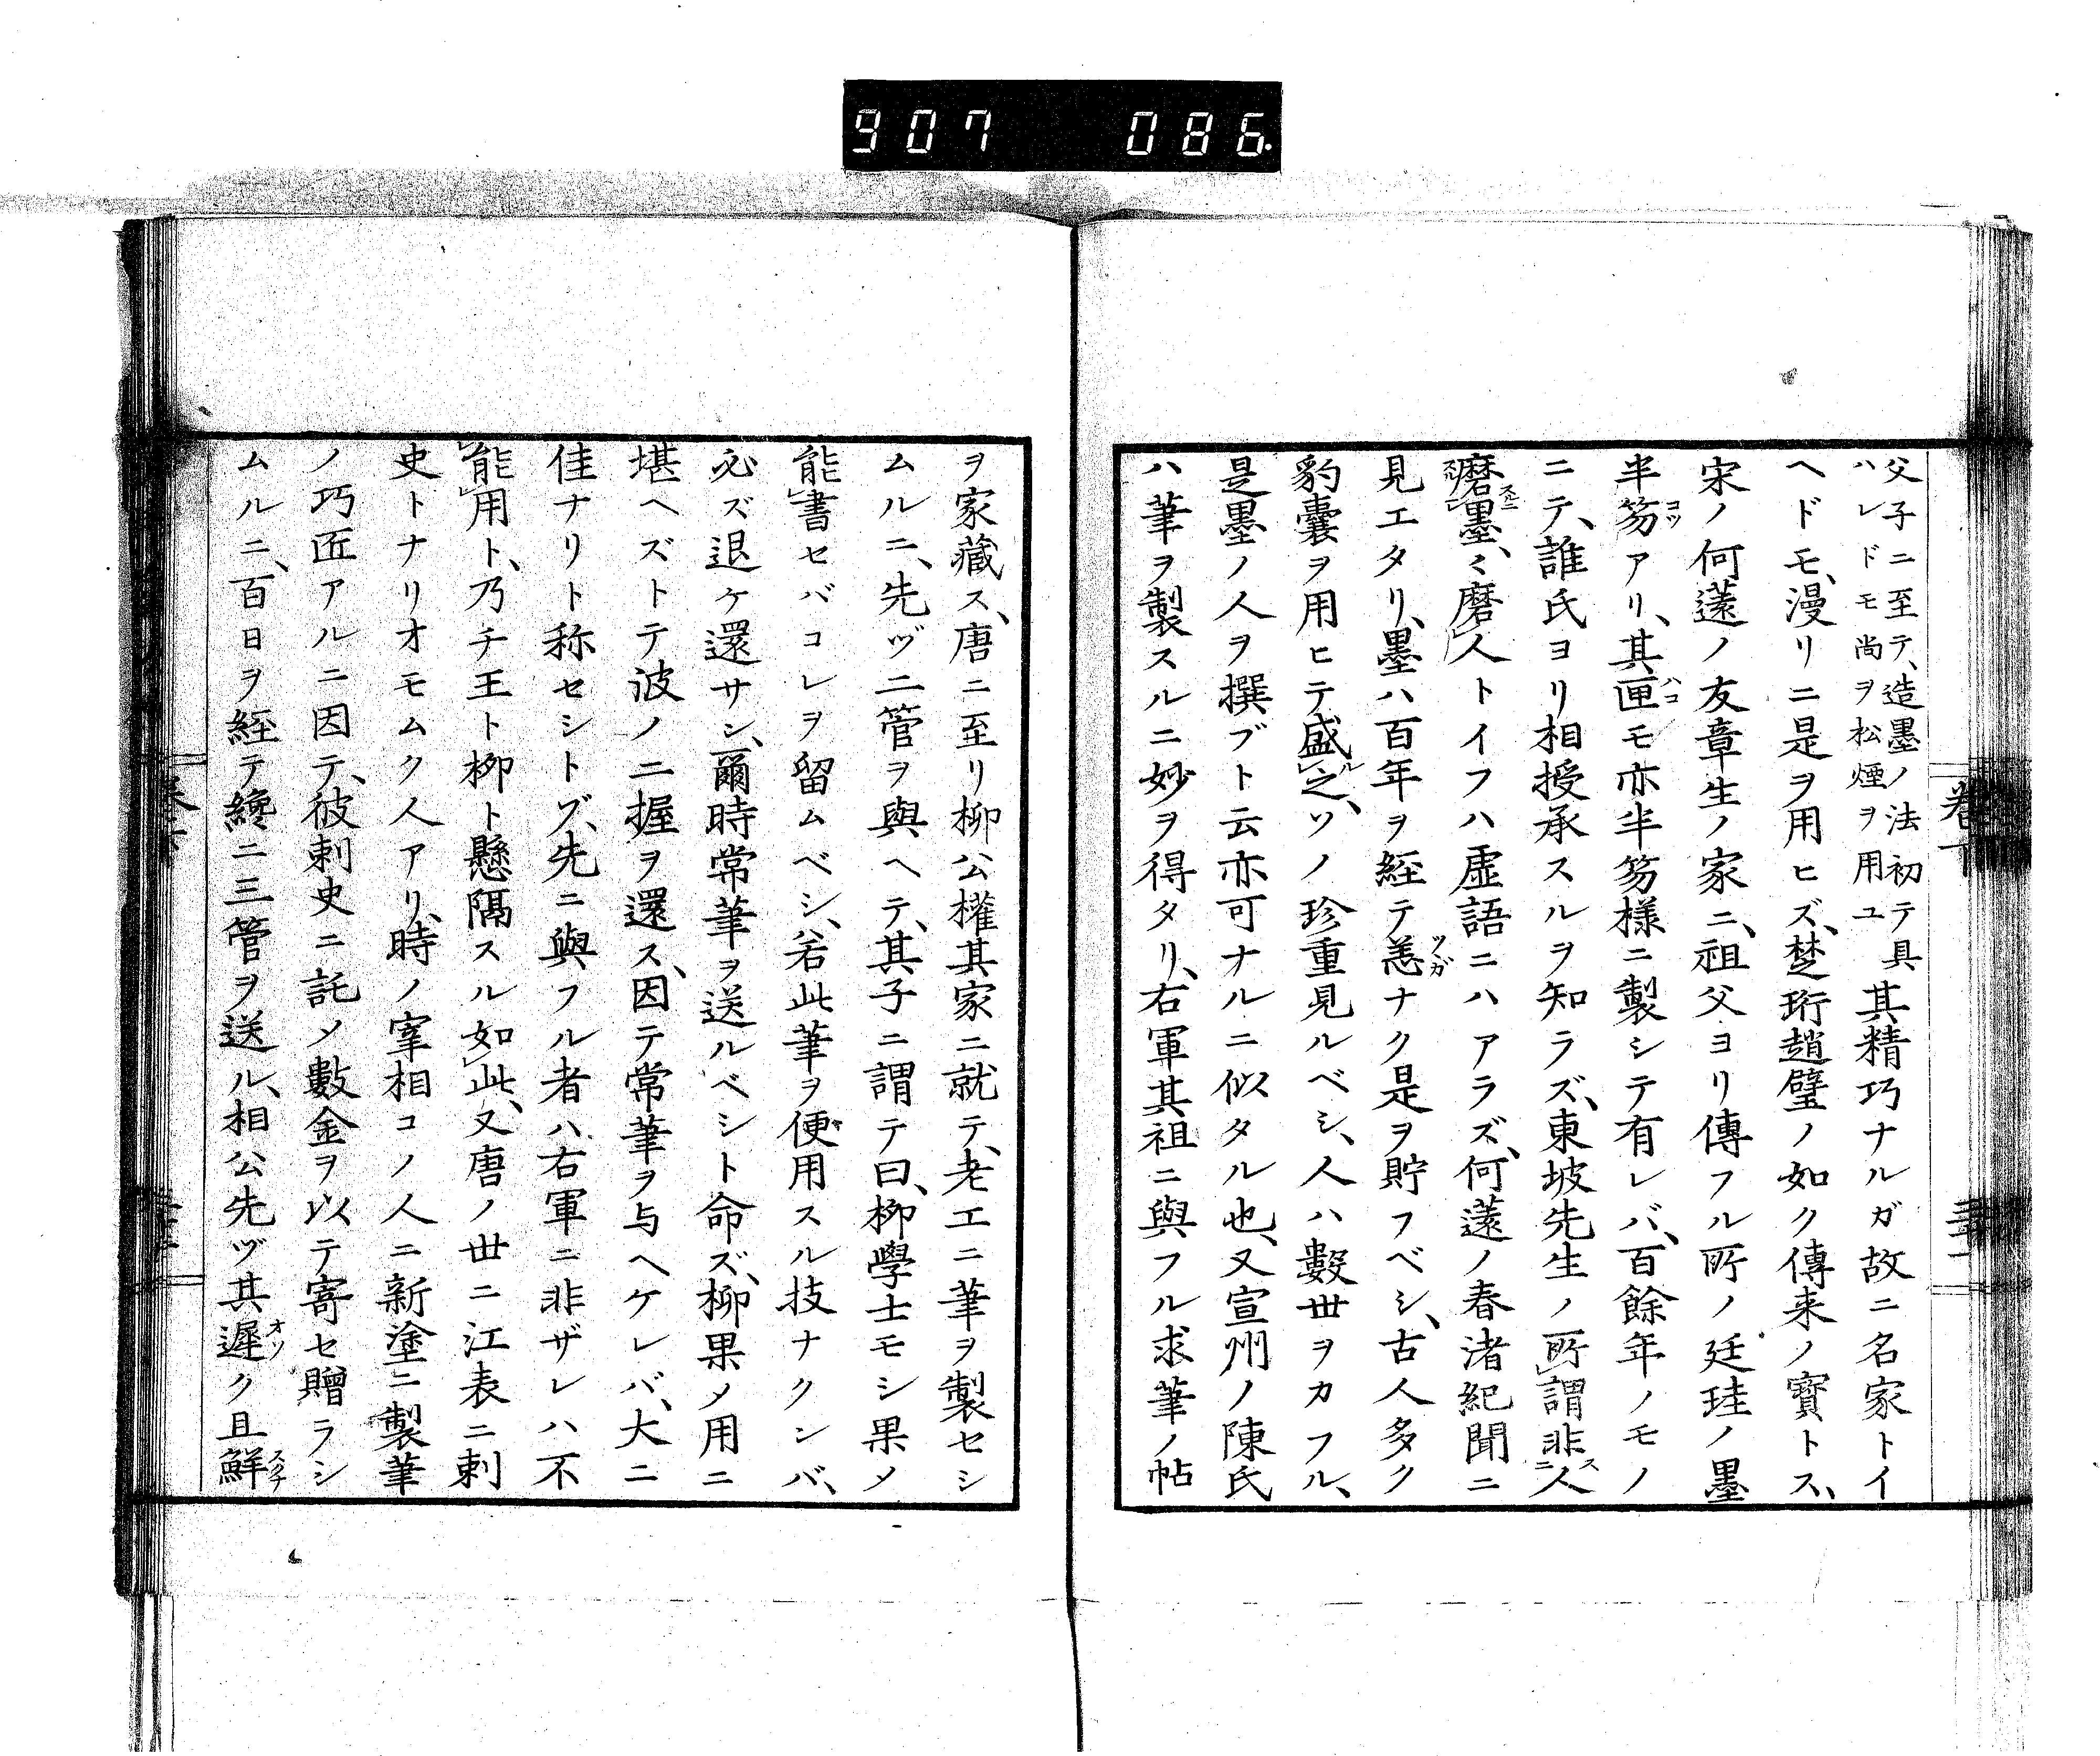 907 086.
父子ニ至テ、造墨ノ法初テ具
ハレドモ尚ヲ松煙ヲ用ユ
其精巧ナルガ故ニ名家トイ
ヘドモ、漫リニ是ヲ用ヒズ、楚珩趙璧ノ如ク傳来ノ寳トス、
宋ノ何薳ノ友章生ノ家ニ、祖父ヨリ傳フル所ノ廷珪ノ墨
半笏アリ、其匣モ亦半笏樣ニ製シテ有レバ、百餘年ノモノ
ニテ、誰氏ヨリ相授承スルヲ知ラズ、東坡先生ノ所謂非人
磨墨、々磨人トイフハ虚語ニハアラズ、何薳ノ春渚紀聞ニ
見エタリ、墨ハ百年ヲ経テ恙ナク是ヲ貯フベシ、古人多ク
豹囊ヲ用ヒテ盛之、ソノ珍重見ルベシ、人ハ數世ヲカフル、
是墨ノ人ヲ撰ブト云亦可ナルニ似タル也、又宣州ノ陳氏
ハ筆ヲ製スルニ妙ヲ得タリ、右軍其祖ニ與フル求筆ノ帖
ヲ家藏ス、唐ニ至リ柳公權其家ニ就テ、老工ニ筆ヲ製セシ
ムルニ、先ヅ二管ヲ與ヘテ、其子ニ謂テ曰、柳學士モシ果メ
能書セバコレヲ留ムベシ、若此筆ヲ便用スル技ナクンバ、
必ズ退ケ還サン、爾時常筆ヲ送ルベシト命ズ、柳果メ用ニ
堪ヘズトテ波ノ二握ヲ還ス、因テ常筆ヲ与ヘケレバ、大ニ
佳ナリト称セシトゾ、先ニ與フル者ハ右軍ニ非ザレハ不
能用ト、乃チ王ト柳ト懸隔スル如此、又唐ノ世ニ江表ニ刺
史トナリオモムク人アリ、時ノ宰相コノ人ニ新塗ニ製筆
ノ巧匠アルニ因テ、彼刺史ニ託メ數金ヲ以テ寄セ贈ラシ
ムルニ、百日ヲ経テ纔ニ三管ヲ送ル、相公先ヅ其遲ク且鮮